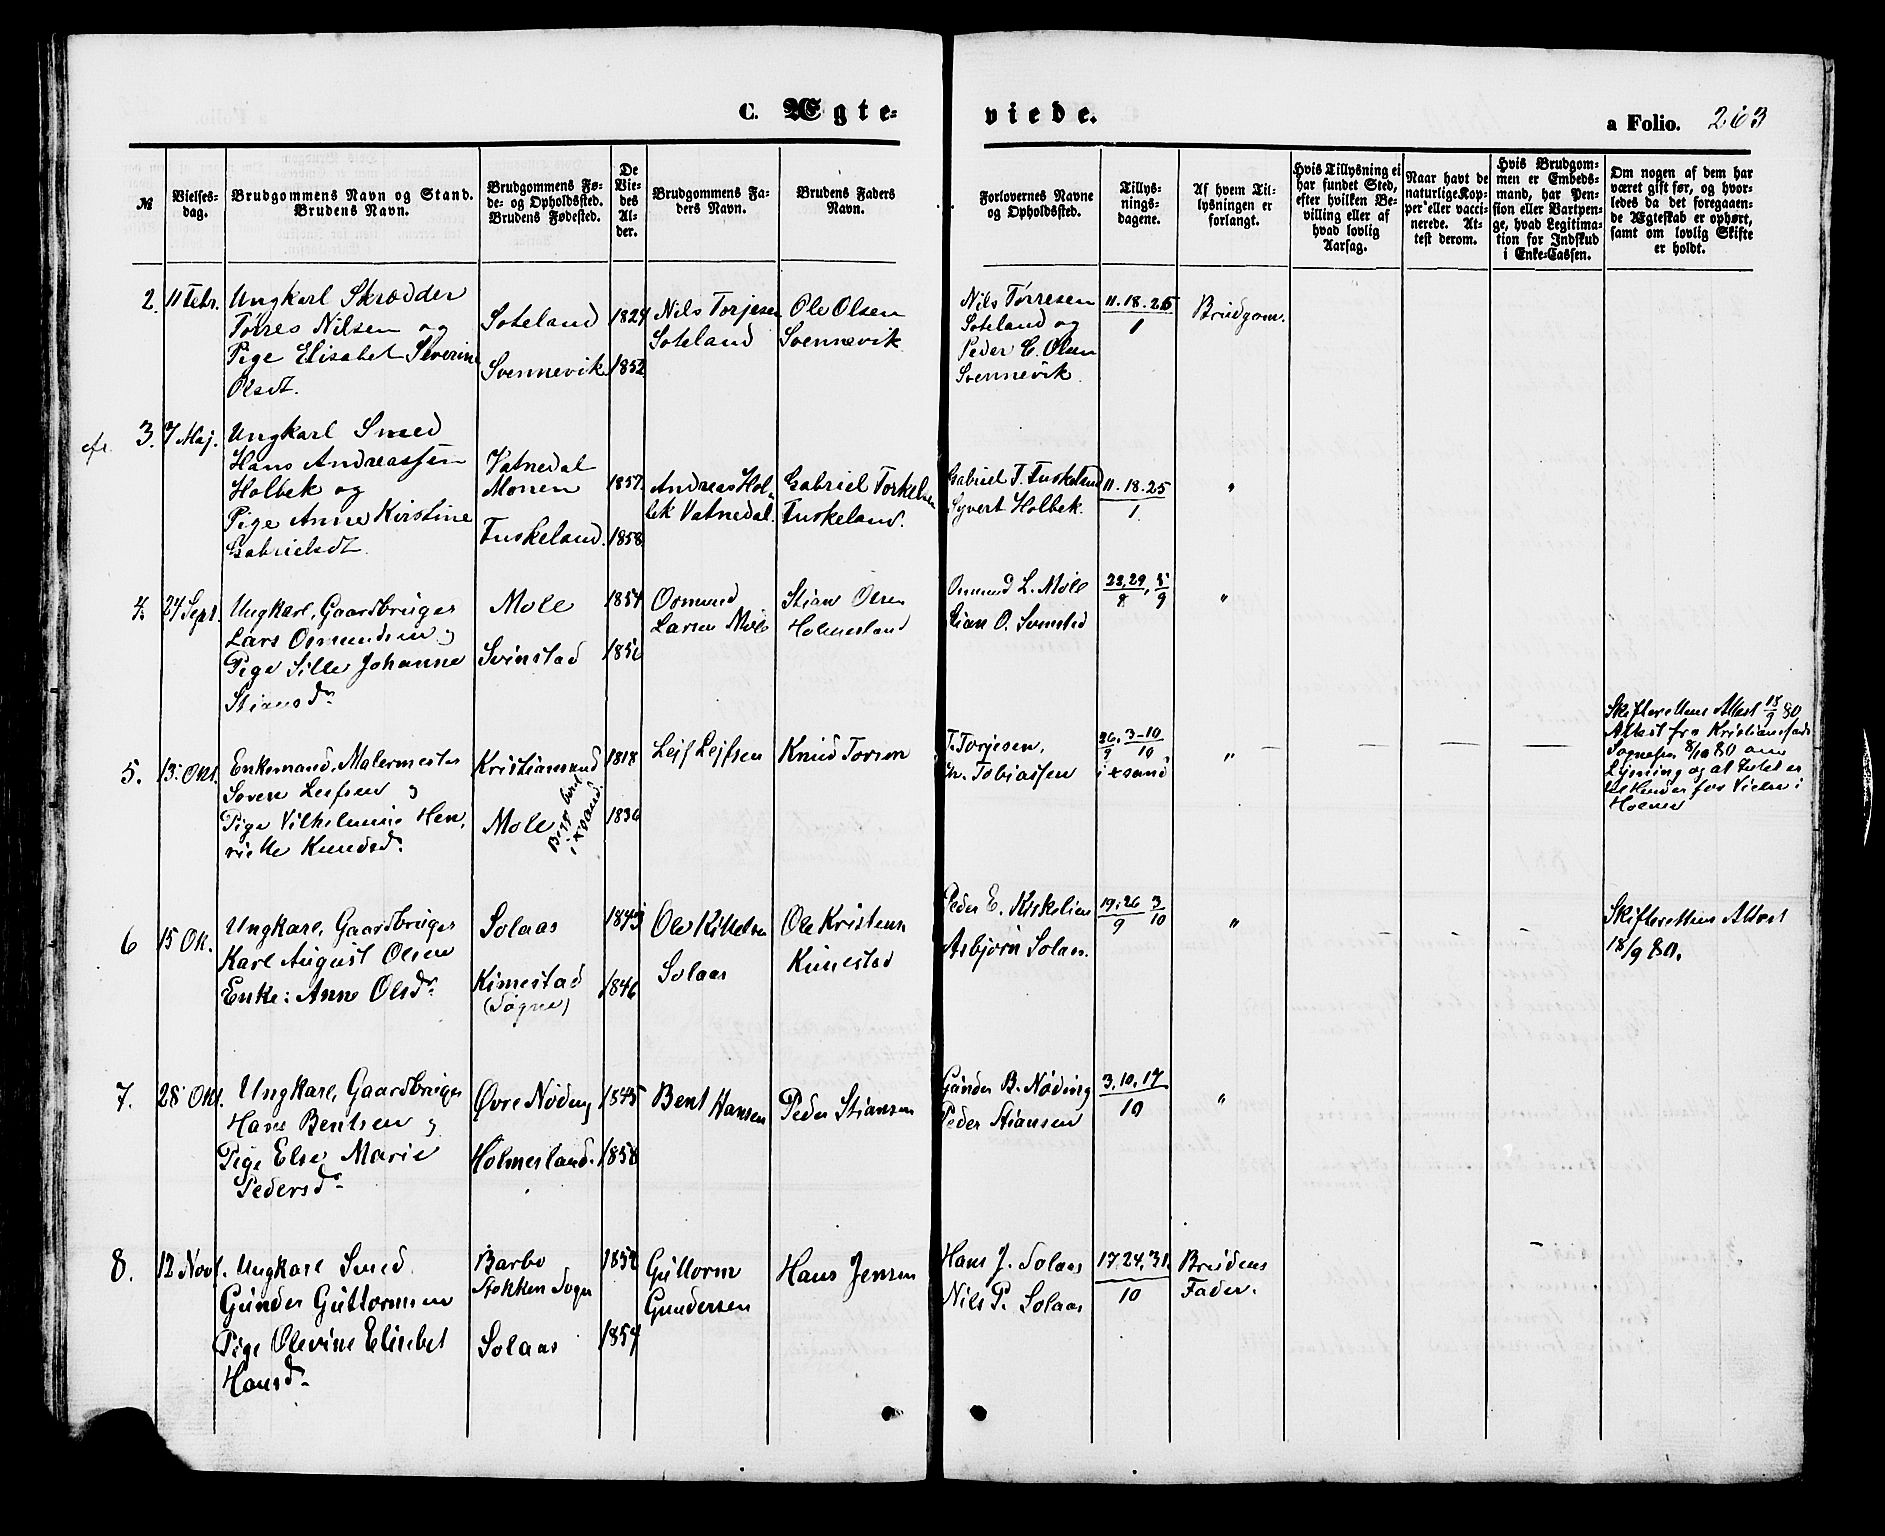 C. Ægte-
viede.
a Folio. 263
№
Vielses-
dag.
Brudgommens Navn og Stand.
Brudens Navn.
Brudgommens Fø-
de- og Opholdssted.
Brudens Fødested.
De
Vie-
des
Al-
der.
Brudgommens Fa-
ders Navn.
Brudens Faders
Navn.
Forlovernes Navne
og Opholdssted.
Tillys-
nings-
dagene.
Af hvem Til-
lysningen er
forlangt.
Hvis Tillysning ei
har fundet Sted,
efter hvilken Be-
villing eller af
hvad lovlig
Aarsag.
Naar havt de
naturlige Kop-
per eller vacci-
nerede. At-
test derom.
Hvis Brudgom-
men er Embeds-
mand, har Pen-
sion eller Vartpen-
ge, hvad Legitima-
tion for Indskud
i Enke-Cassen.
Om nogen af dem har
været gift før, og hvor-
ledes da det foregaaen-
de Ægteskab er ophørt,
samt om lovlig Skifte
er holdt.
2. 11 Febr.
Ungkarl Skrædder
Torres Nilsen og
Pige Elisabet Severine
Olsdt.
Soteland
Svennevik
1824
1852
Nils Torjesen
Soteland
Ole Olsen
Svennevik
Nils Torresen
Soteland og
Peder C. Olsen
Svennevik
11. 18. 25
1
Brudgom.
3. 7 Maj.
Ungkarl Smed
Hans Andreassen
Holbek og
Pige Anne Kirstine
Gabrielsdt.
Vatnedal
Monen
Tuskeland.
1857
1858
Andreas Hol-
bek Vatnedal.
Gabriel Torkelsen
Tuskeland.
Gabriel T. Tuskeland
Syvert Holbek.
11. 18. 25
1
"
4. 24 Sept.
Ungkarl, Gaardbruger
Lars Osmundsen og
Pige Sille Johanne
Stiansdr
Mole
Svinstad
1854
1856
Osmund
Larsen Mole
Stian Olsen
Holmesland
Osmund L. Mole
Stian O. Svinstad
22, 29, 5
8 9
"
5. 15 Okt.
Enkemand, Malermester
Soren Leifsen og
Pige Vilhelmine Hen-
riette Knudsdr
Kristiansand
Mole
1818
1836
Leif Leifsen
Knud Torsen
T. Torjesen,
Tobiassen i Xsand
26, 3-10
9 10
"
Skifterettens Attest 18/9 80
Attest fra Kristiansands
Sogneprest 8/10 80 om
Lysning og at Intet er
til Hinder for Vielse i
Holum
6 15 Ok.
Ungkarl, Gaardbruger
Karl August Olsen
Enke: Anne Olsdr
Solaas
Kimestad
(Søgne)
1843
1846
Ole Kittelsen
Solaas
Ole Kristensen
Kimestad
Peder E. Kirkelien
Asbjørn Solaas.
19. 26 3
9 10
"
Skifterettens Attest
18/9 80.
7. 28 Okt.
Ungkarl, Gaardbruger
Hans Bentsen og
Pige Else Marie
Pedersdr
Øvre Nøding
Holmesland.
1845
1858
Bent Hansen
Peder Stiansen
Gunder B. Nøding
Peder Stiansen
3, 10, 17
10
"
8. 12 Novl.
Ungkarl Smed
Gunder Guttormsen
Pige Olevine Elisebet
Hansdr
Barbo
Stokken Sogn
Solaas
1852
1854
Guttorm
Gundersen
Hans Jensen
Hans J. Solaas
Nils P. Solaas
17, 24, 31.
10
Brudens
Fader.